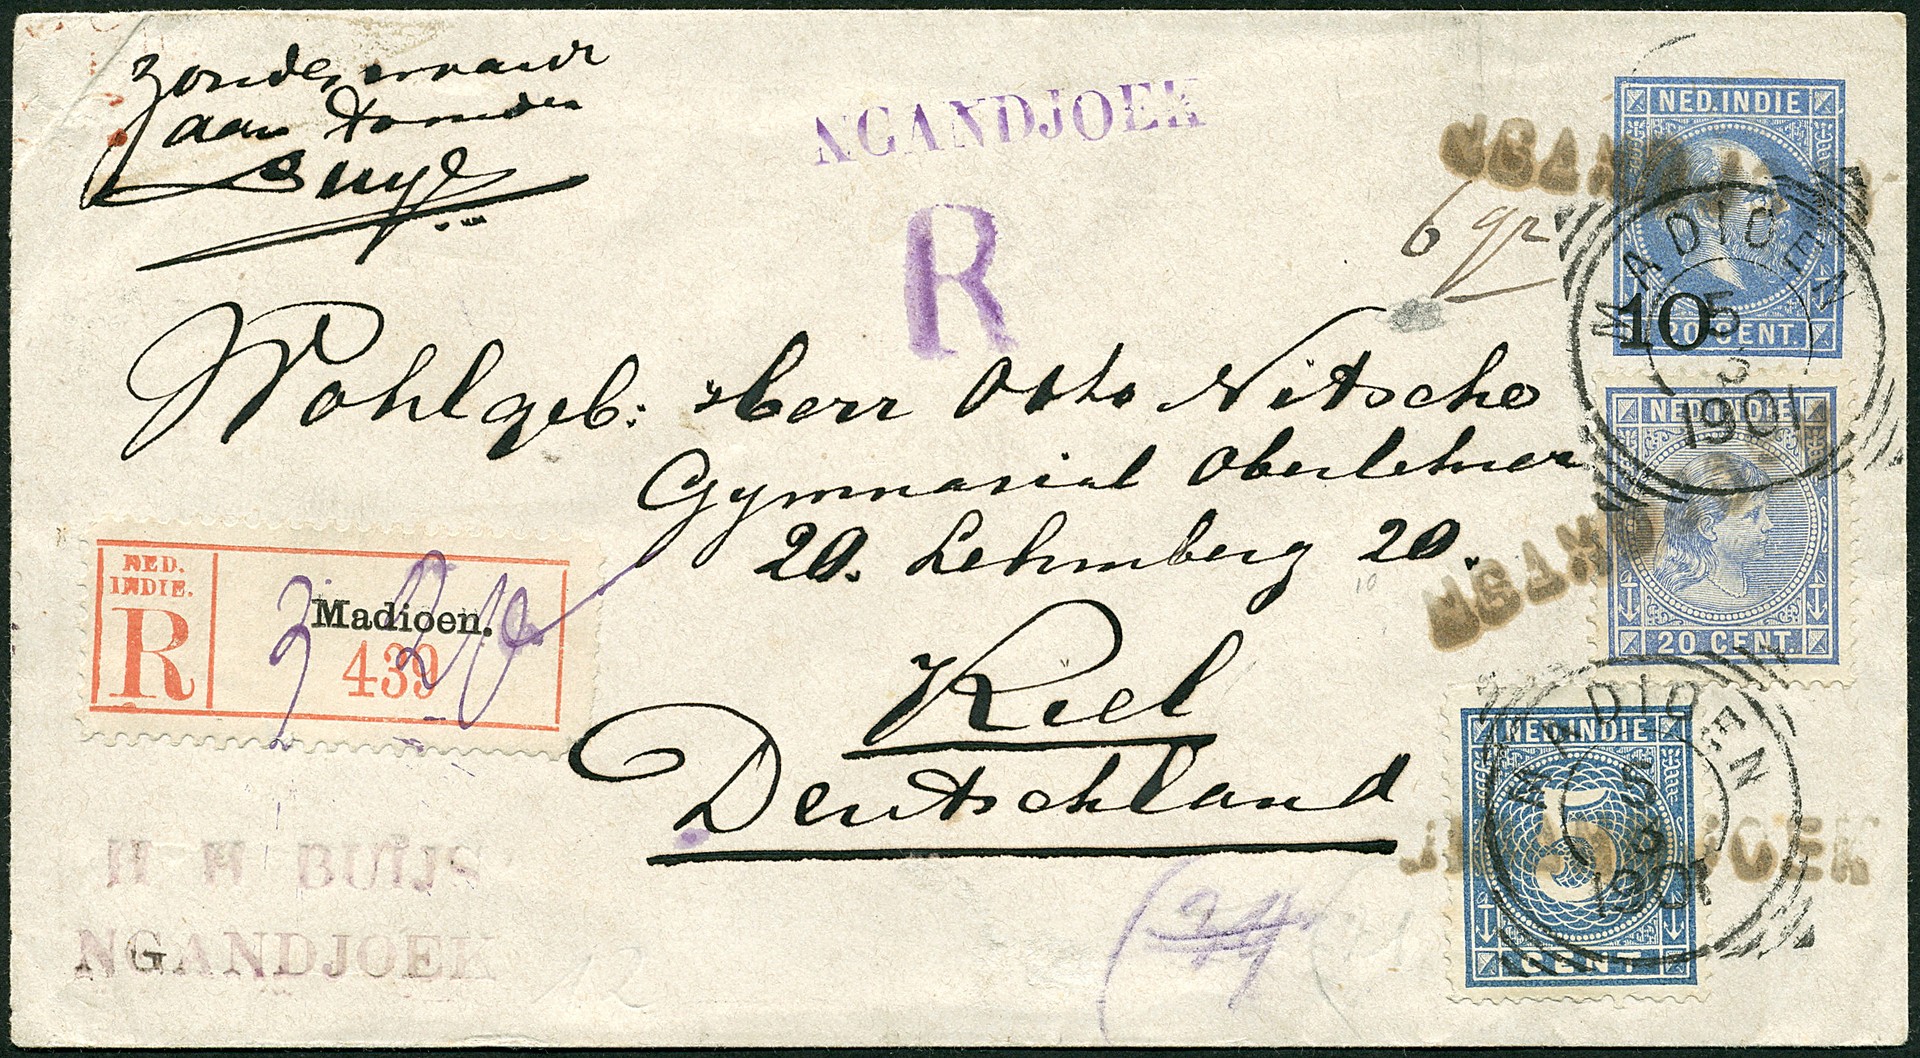 Zonder waarde
aan
Buijs
NGANDJOEK
R
6 gr
NED. INDIE
10
20 CENT.
MADIOEN
5
3
1901
Wohlgeb: Herr Otto Nitsche
Gymnasial Oberlehrer
20. Lehmberg 20.
10
Kiel
Deutschland
NED.
INDIE.
R
Madioen.
439
NED. INDIE
20 CENT.
NED. INDIE
5
CENT
MADIOEN
5
3
1901
NGANDJOEK
H H BUIJS
NGANDJOEK